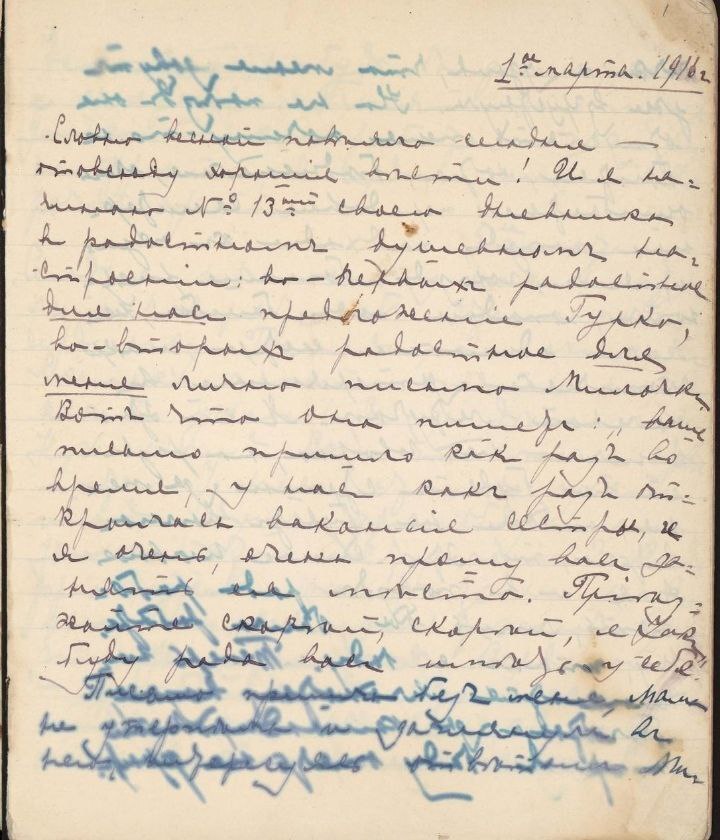 1ое марта. 1916 г
Словно весной повеяло сегодня —
отовсюду хорошiе вѣсти! И я на-
чинаю № 13ый своего дневника
въ радостномъ душевномъ на-
строенiи: во-первыхъ радостное
для насъ предложенiе Гурко,
во-вторыхъ радостное для
меня лично письмо Милочки
Вотъ что она пишетъ: „ваше
письмо пришло какъ разъ во
время, у насъ какъ разъ от-
крылась вакансiя сестры, и
я очень, очень прошу васъ за-
нять ея мѣсто. Прiѣз-
жайте скорѣй, скорѣй, я такъ
буду рада васъ имѣть у себя"
Письмо пришло безъ меня, мама
не утерпѣла и
отвѣтомъ